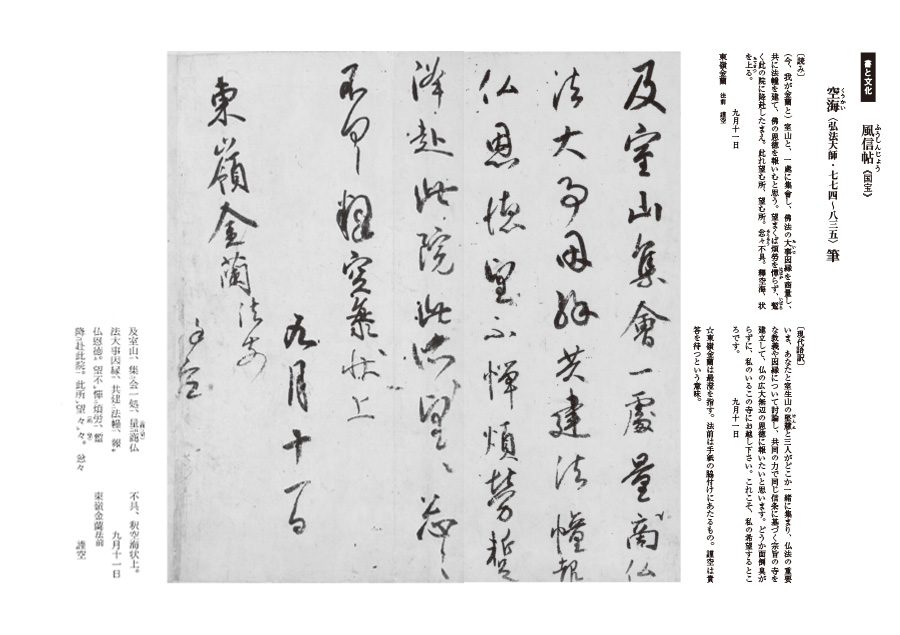 書と文化
風信帖《国宝》
ふうしんじょう
空海（弘法大師・七七四～八三五）筆
くうかい
〔読み〕
（今、我が金蘭と）室山と、一處に集會し、佛法の大事因縁を商量し、
共に法幢を建て、佛の恩徳を報いむと思う。望まくは煩労を憚らず、蹔
く此の院に降赴したまえ。此れ望む所、望む所。忩々不具。釋空海、状
を上る。
九月十一日
東嶺金蘭　法前　謹空
〔現代語訳〕
いま、あなたと室生山の堅慧と三人がどこか一緒に集まり、仏法の重要
な教義や因縁について討論し、共同の力で同じ信条に基づく宗旨の寺を
建立して、仏の広大無辺の恩徳に報いたいと思います。どうか面倒臭が
らずに、私のいるこの寺にお越し下さい。これこそ、私の希望するとこ
ろです。
九月十一日
☆東嶺金蘭は最澄を指す。法前は手紙の脇付けにあたるもの。謹空は貴
答を待つという意味。
及室山集會一處量商仏
法大事因縁共建法幢報
仏恩徳望不憚煩勞蹔
降赴此院此所望々忩々
不具釋空海状上
九月十一日
東嶺金蘭法前
謹空
及室山、集会一処、量商仏
法大事因縁、共建法幢、報
仏恩徳。望不憚煩労、蹔
降赴此院。此所望々々。忩々
不具、釈空海状上。
九月十一日
東嶺金蘭法前
謹空